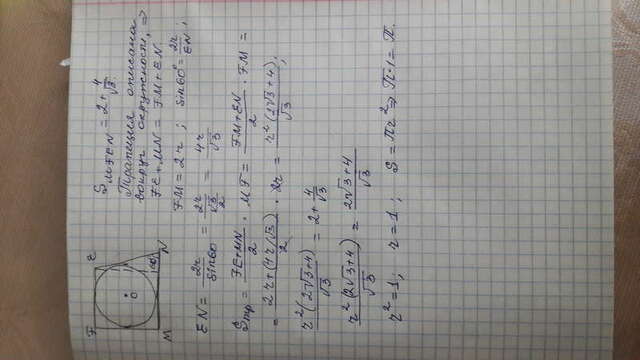 F E
O
60°
M N
S_MFEN = 2 + 4/√3.
Трапеция описана
вокруг окружности, ⇒
FE + MN = FM + EN.
FM = 2r ; sin60° = 2r/EN ;
EN = 2r/sin60 = 2r/(√3/2) = 4r/√3
Sтр = (FE+MN)/2 · MF = (FM+EN)/2 · FM =
= (2r + (4r/√3))/2 · 2r = r²(2√3+4)/√3 ;
r²(2√3+4)/√3 = 2 + 4/√3
r²(2√3+4)/√3 = (2√3+4)/√3
r² = 1 ; r = 1 ; S = Пr² ⇒ П·1 = П.